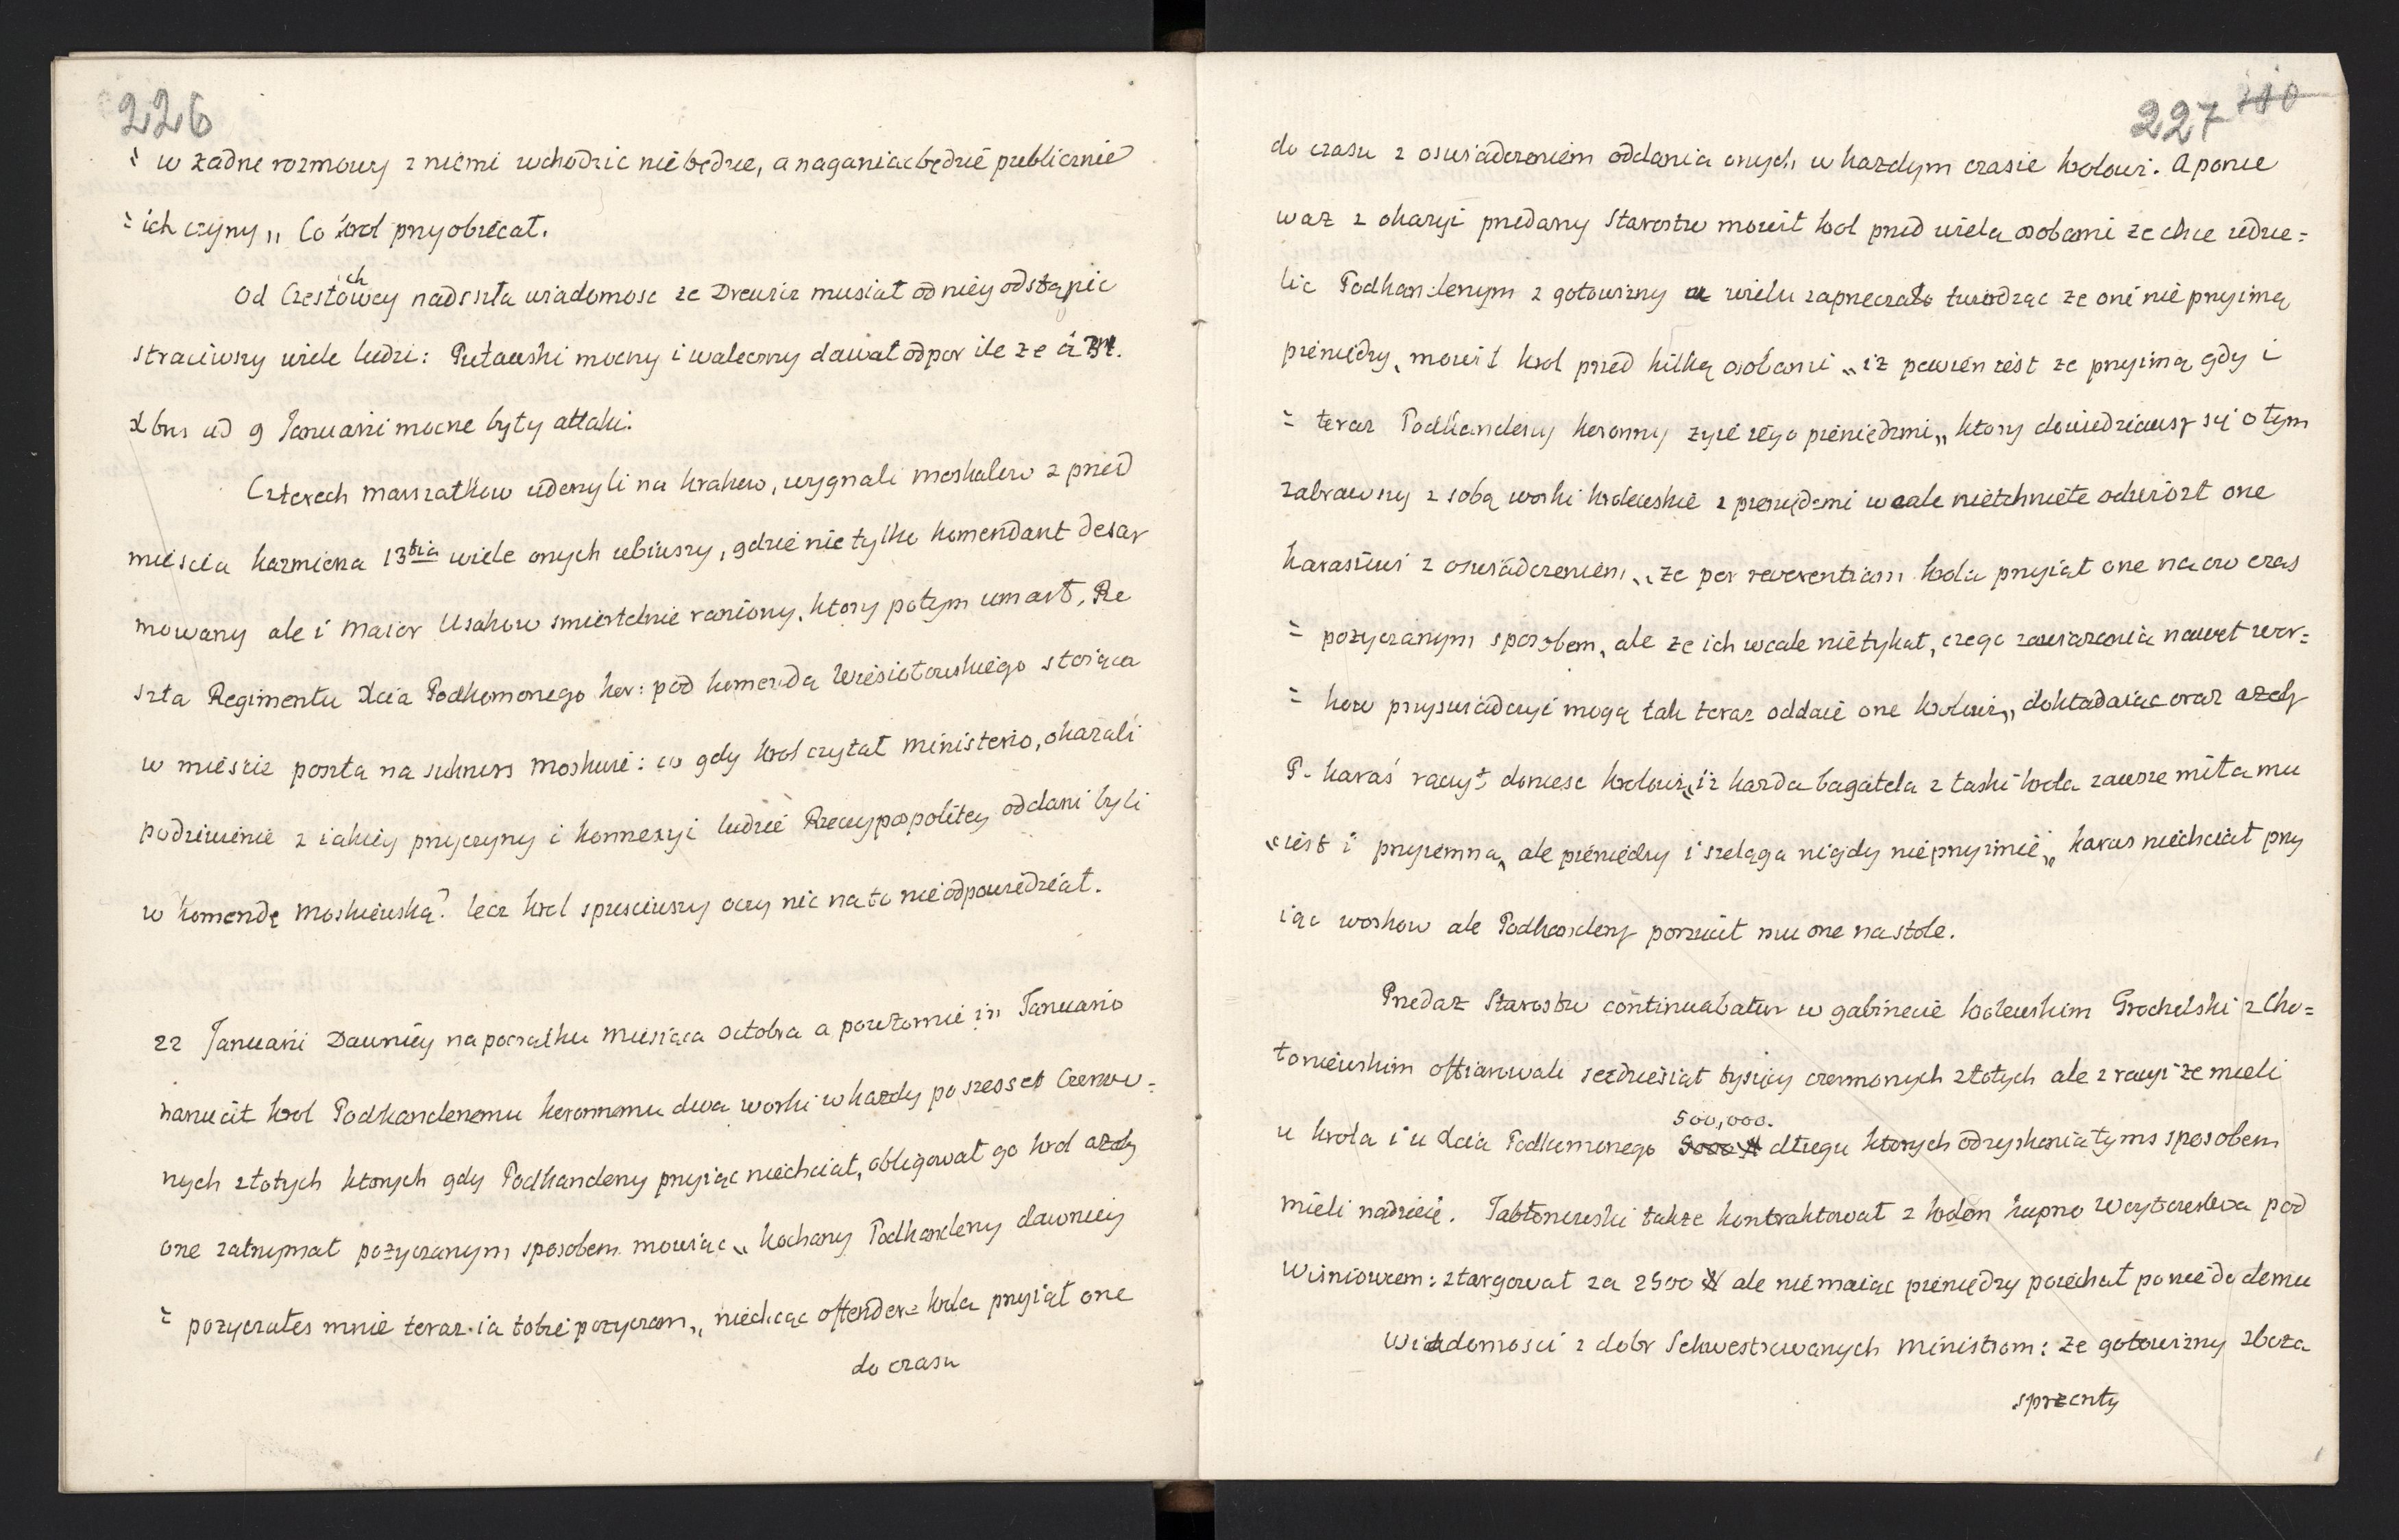 226
„ w żadne rozmowy z niemi wchodzic niebędzie, a naganiac będzie publicznie
„ ich czyny„ Co krol przyobiecał.
Od Częstowey nadeszła wiadomosc ze Drewicz musiał od niey odstąpic
ch
straciwszy wiele ludzi: Puławski mocny i waleczny dawał odpor ile ze á 31.
Xbris ad 9 Januarii mocne były attaki.
Czterech marszałkow uderzyli na Krakow, wygnali moskalow z przed
miescia kazmierza 13tia wiele onych ubiwszy, gdzie nie tylko komendant desar
mowany ale i Maior Usakow smiertelnie raniony, ktory potym umarł, Re
szta Regimentu Xcia Podkomorzego kor: pod komendą Wiesiołowskiego stoiąca
w miescie poszła na sukurs Moskwie: co gdy krol czytał Ministerio, okazali
podziwienie z iakiey przyczyny i konnexyi ludzie Rzeczypospolitey oddani byli
w komendę Moskiewską? lecz krol spusciwszy oczy nic na to nieodpowiedział.
22 Januarii Dawniey na początku Miesiąca Octobra a powtornie in Januario
narzucił krol Podkanclerzemu koronnemu dwa worki w kazdy po szesset Czerwo=
nych złotych ktorych gdy Podkanclerzy przyiąc niechciał, obligował go krol azeby
one zatrzymał pożyczanym sposobem mowiąc „ kochany Podkanclerzy dawniey
„ pozyczałes mnie teraz ia tobie pozyczam„ niechcąc offendere krola przyiął one
do czasu
227 110
do czasu z oswiadczeniem oddania onych w kazdym czasie krolowi. A ponie
waz z okazyi przedazy Starostw mowił krol przed wielą osobami ze chce udzie=
lic Podkanclerzym z gotowizny a wielu zaprzeczało twierdząc ze oni nie przyimą
pieniędzy, mowił krol przed kilką osobami „iz pewien iest ze przyimą gdy i
„ teraz Podkanclerzy koronny zyie iego pieniędzmi„ ktory dowiedziawszy się o tym
zabrawszy z sobą worki krolewskie z pieniędzmi wcale nietchnięte odwiozł one
karasiowi z oswiadczeniem „ze per reverentiam krola przyiął one na ow czas
„ pozyczanym sposobem, ale ze ich wcale nietykał, czego zawiązania nawet wor=
„ kow przyswiadczyc mogą tak teraz oddaie one krolowi„ dokładaiąc oraz azeby
P. karaś raczył doniesc krolowi „iz kazda bagatela z łaski krola zawsze miła mu
„iest i przyiemna, ale pieniędzy i szeląga nigdy nieprzyimie„ karas niechciał przy
iąc workow ale Podkanclerzy porzucił mu one na stole.
Przedaz Starostw continuabatur w gabinecie krolewskim Grocholski z Cho=
łoniewskim offiarowali sezdziesiąt tysięcy czerwonych złotych ale z racyi ze mieli
500,000.
u krola i u Xcia Podkomorzego długu ktorych odzyskania tyms sposobem
mieli nadzieię. Jabłonowski także kontraktował z krolem kupno Woytowstwa pod
Wisniowcem: ztargował za 2500 # ale niemaiąc pieniędzy poiechał po nie do domu
Wiadomosci z dobr Sekwestrowanych Ministrom: ze gotowizny zboza
sprzenty